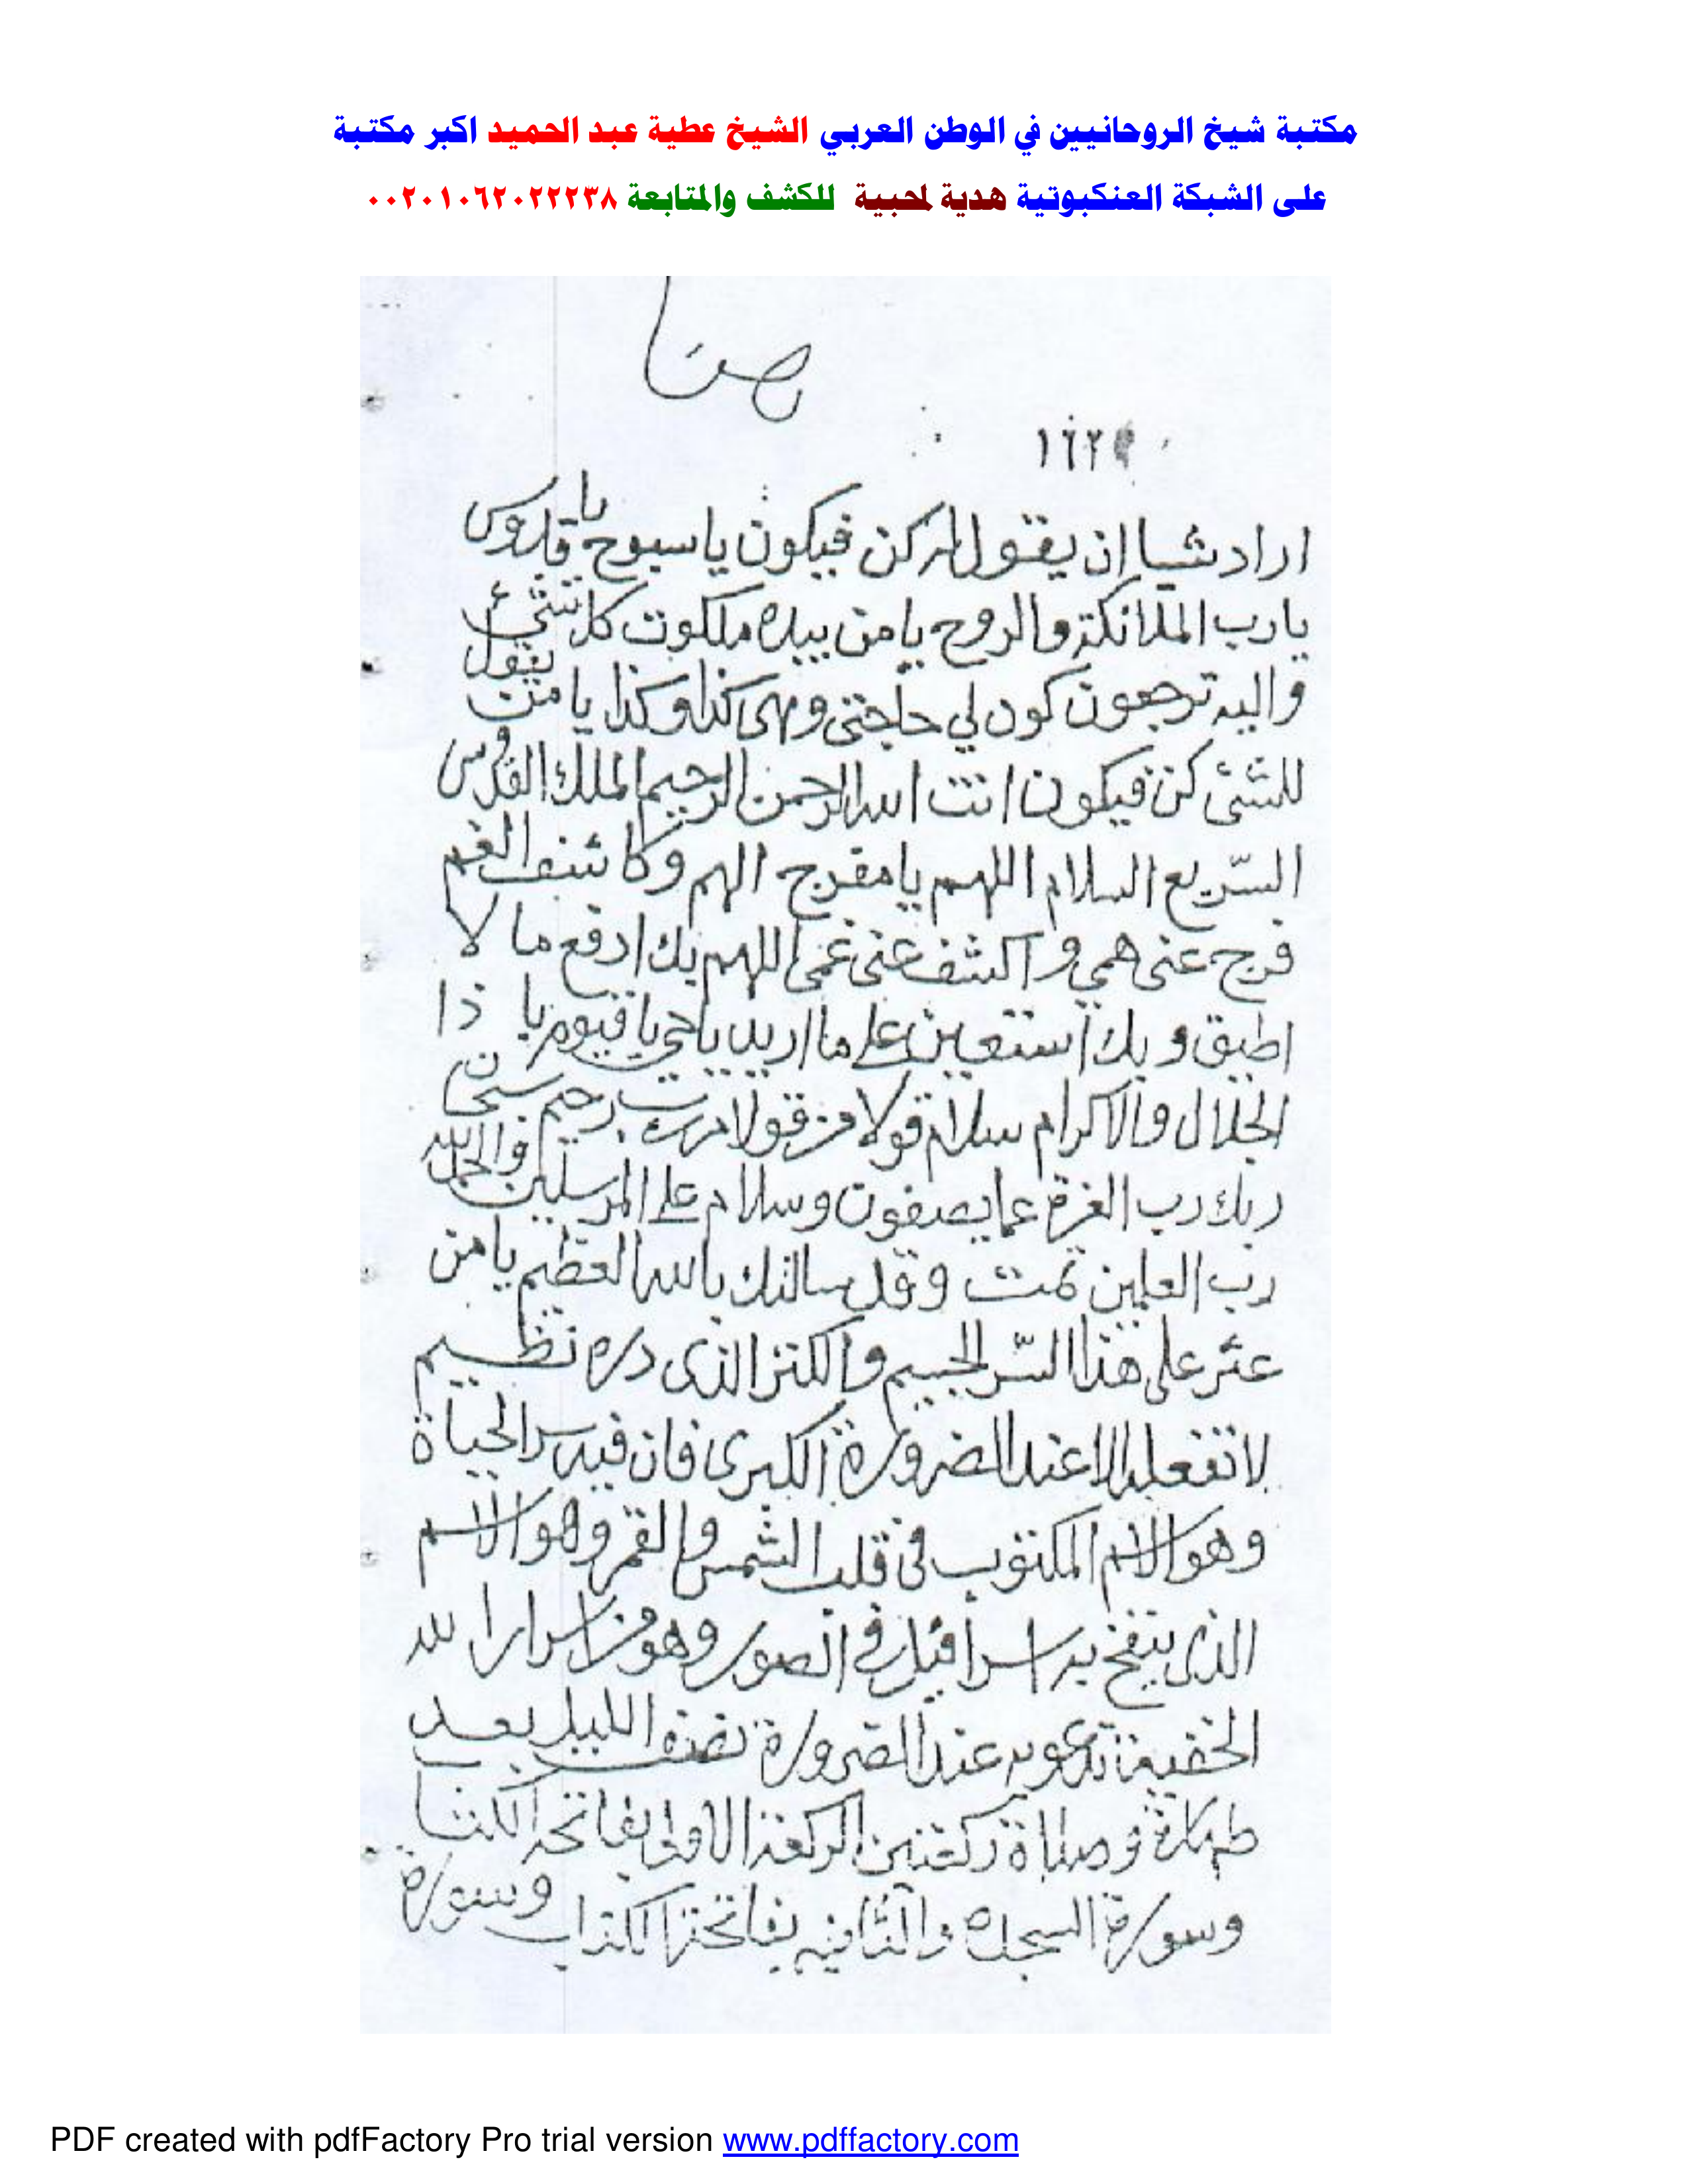 مكتبة شيخ الروحانيين في الوطن العربي الشيخ عطية عبد الحميد اكبر مكتبة
على الشبكة العنكبوتية هدية لمحبية للكشف والمتابعة ٠٠٢٠١٠٦٢٠٢٢٢٣٨
اراد شيا ان يقول له كن فيكون يا سبوح يا قدوس
يا رب الملائكة والروح يا من بيده ملكوت كل شئ
واليه ترجعون كون لي حاجتى وهى كذا وكذا يا من يقول
للشئ كن فيكون انت الله الرحمن الرحيم الملك القدوس
السّريع السلام اللهم يا مفرج الهم وكاشف الغم
فرج عنى همي واكشف عنى غمى اللهم بك ادفع ما لا
اطيق وبك استعين على ما اريد يا حي يا قيوم يا ذا
الجلال والاكرام سلام قولا من رب رحيم سبحان
ربك رب العزة عما يصفون وسلام على المرسلين والحمد لله
رب العلمين تمت وقد سالتك بالله العظيم يا من
عثر على هذا السّر الجسيم والكنز الذى دره نظيم
لا تفعله الا عند الضرورة الكبرى فان فيه سر الحياة
وهو الاسم المكتوب فى قلب الشمس والقمر وهو الاسم
الذى ينفخ به اسرافيل في الصور وهو من اسرار الله
الخفية تدعو به عند الضرورة نصف الليل بعد
طهارة وصلاة ركعتين الركعة الاولى بفاتحة الكتاب
وسورة السجده والثانيه بفاتحة الكتاب وسورة
PDF created with pdfFactory Pro trial version www.pdffactory.com